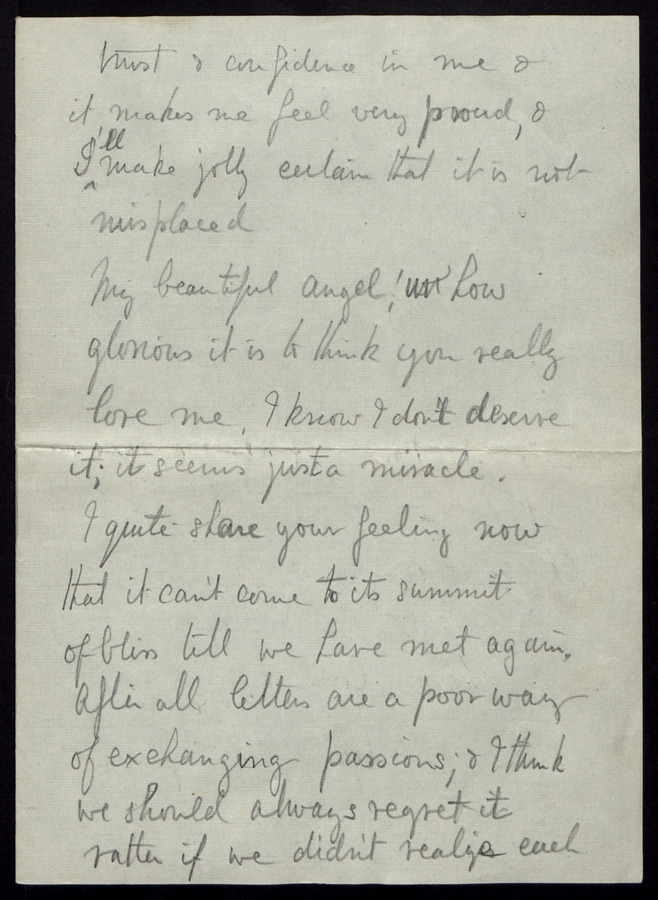 trust & confidence in me &
it makes me feel very proud, &
I'll make jolly certain that it is not
misplaced
My beautiful angel! How
glorious it is to think you really
love me. I know I don't deserve
it; it seems just a miracle.
I quite share your feeling now
that it can't come to its summit
of bliss till we have met again.
After all letters are a poor way
of exchanging passions; & I think
we should always regret it
rather if we didn't realize each